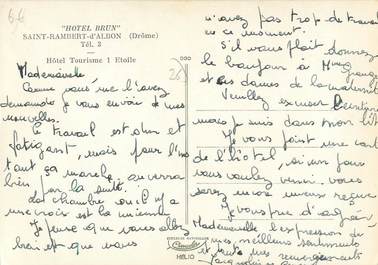 6€
"HOTEL BRUN"
SAINT-RAMBERT-d'ALBON (Drôme)
Tél. 3
Hôtel Tourisme 1 Etoile
Mademoiselle
Comme vous me l'avez
demandé je vous envoie de mes
nouvelles.
Le travail est dur et
fatigant, mais pour l'ins
tant ça marche, on verra
bien par la suite.
La chambre ou il y a
une croix est la mienne
Je pense que vous allez
bien et que vous
n'avez pas trop de travail
en ce moment.
S'il vous plait donnez
le bonjour à
et aux dames de la maternité
Veuillez excuser l'écriture
mais je suis dans mon lit
Je vous joint une carte
de l'hôtel, si un jour
vous voulez venir, vous
serez
Je vous prie d'agréer
Mademoiselle l'expression de
mes meilleurs sentiments
et
HELIO